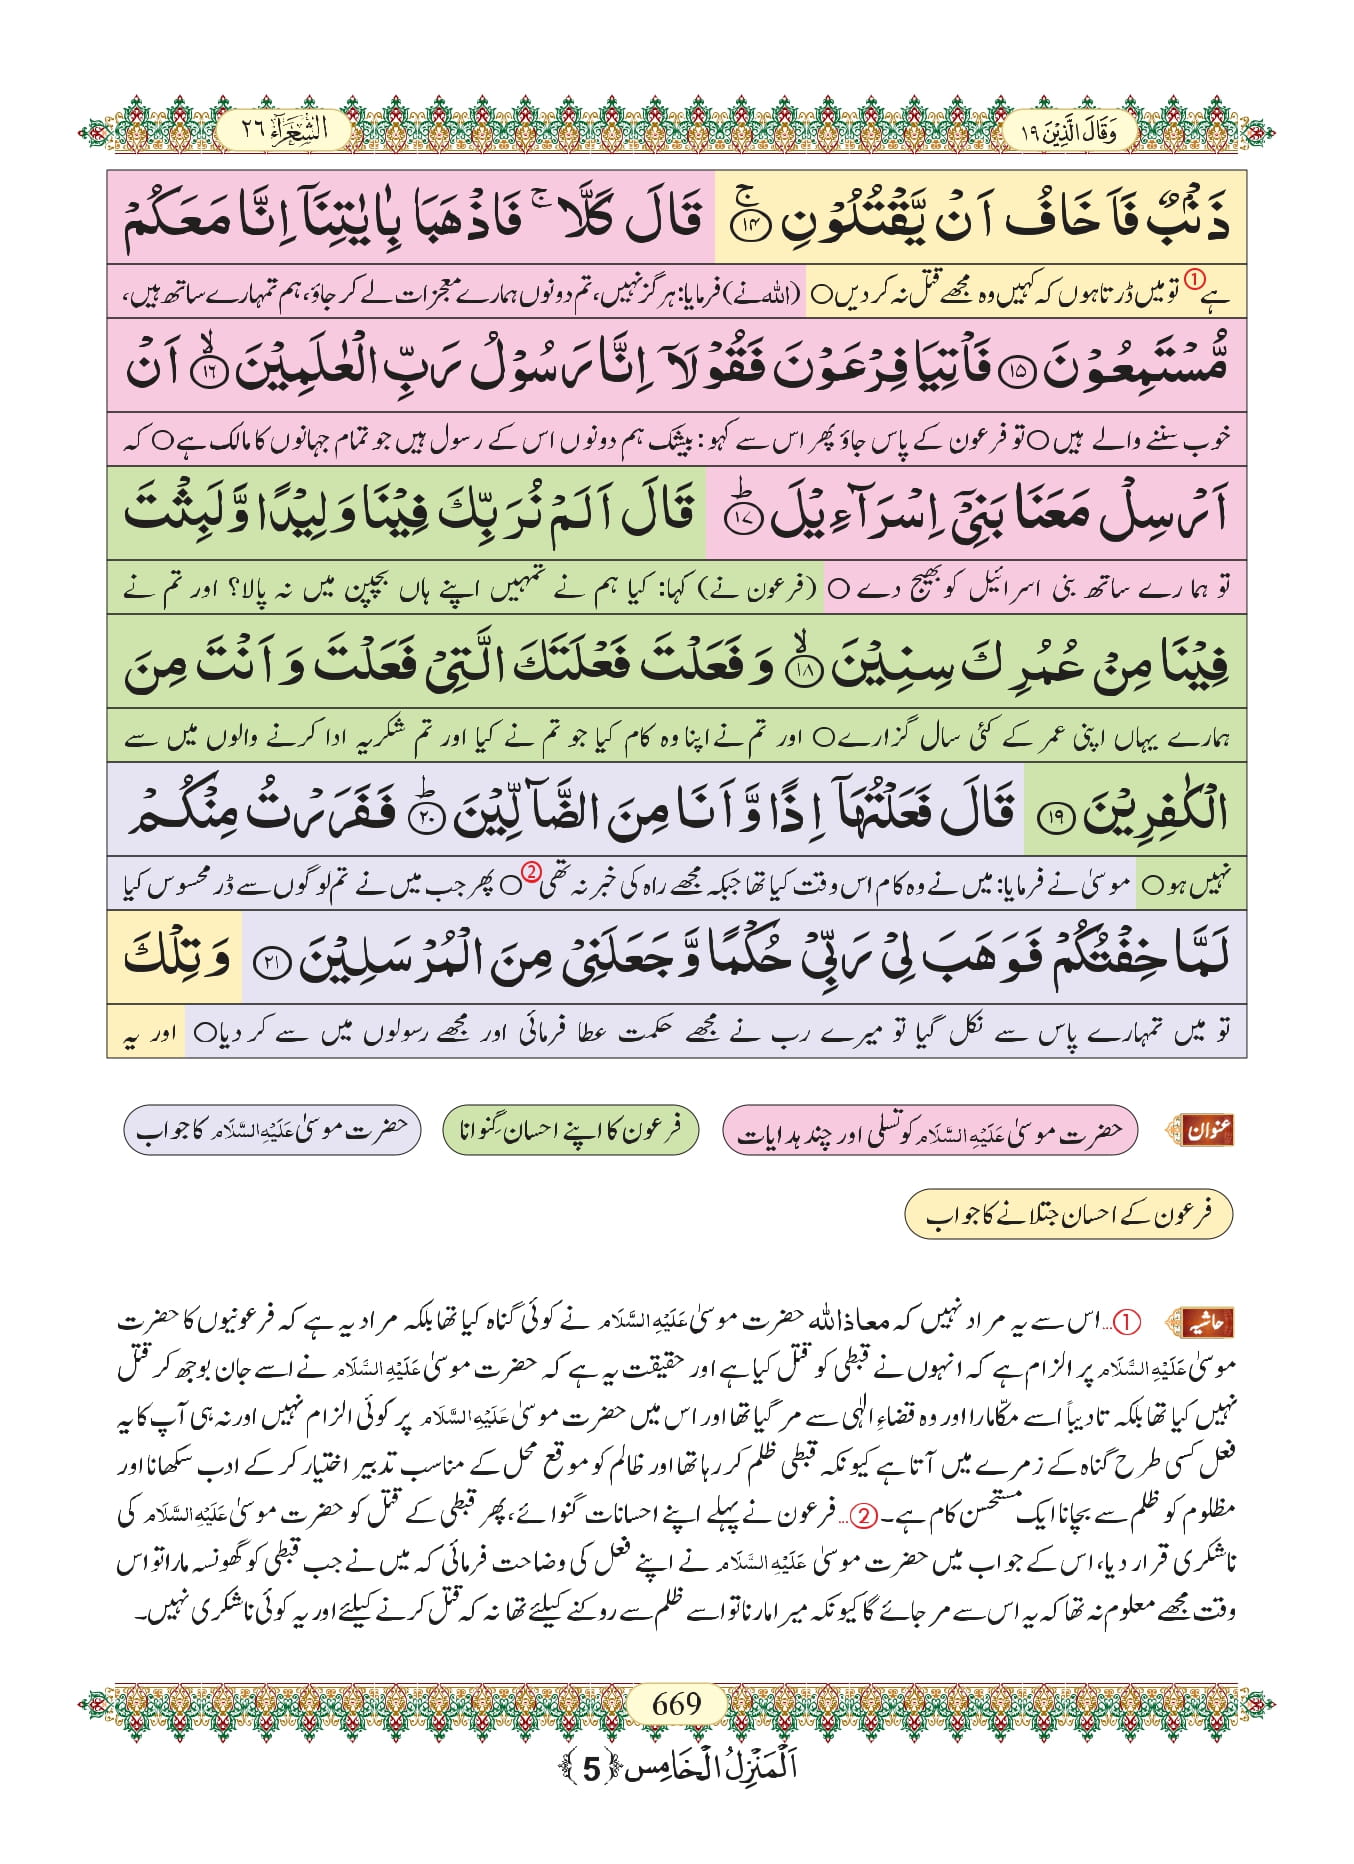 وَقَالَ الَّذِیْنَ ١٩
الشُّعَرَآء ٢٦
ذَنْۢبٌ فَاَخَافُ اَنْ یَّقْتُلُوْنِ ۚ﴿۱۴﴾ قَالَ كَلَّا ۚ فَاذْهَبَا بِاٰیٰتِنَاۤ اِنَّا مَعَكُمْ
ہے ① تو میں ڈرتا ہوں کہ کہیں وہ مجھے قتل نہ کر دیں ○ (اللہ نے) فرمایا: ہرگز نہیں، تم دونوں ہمارے معجزات لے کر جاؤ، ہم تمہارے ساتھ ہیں،
مُّسْتَمِعُوْنَ ﴿۱۵﴾ فَاْتِیَا فِرْعَوْنَ فَقُوْلَاۤ اِنَّا رَسُوْلُ رَبِّ الْعٰلَمِیْنَ ۙ﴿۱۶﴾ اَنْ
خوب سننے والے ہیں ○ تو فرعون کے پاس جاؤ پھر اس سے کہو: بیشک ہم دونوں اس کے رسول ہیں جو تمام جہانوں کا مالک ہے ○ کہ
اَرْسِلْ مَعَنَا بَنِیْۤ اِسْرَآءِیْلَ ؕ﴿۱۷﴾ قَالَ اَلَمْ نُرَبِّكَ فِیْنَا وَلِیْدًا وَّلَبِثْتَ
تو ہمارے ساتھ بنی اسرائیل کو بھیج دے ○ (فرعون نے) کہا: کیا ہم نے تمہیں اپنے ہاں بچپن میں نہ پالا؟ اور تم نے
فِیْنَا مِنْ عُمُرِكَ سِنِیْنَ ۙ﴿۱۸﴾ وَفَعَلْتَ فَعْلَتَكَ الَّتِیْ فَعَلْتَ وَاَنْتَ مِنَ
ہمارے یہاں اپنی عمر کے کئی سال گزارے ○ اور تم نے اپنا وہ کام کیا جو تم نے کیا اور تم شکریہ ادا کرنے والوں میں سے
الْكٰفِرِیْنَ ﴿۱۹﴾ قَالَ فَعَلْتُهَاۤ اِذًا وَّاَنَا مِنَ الضَّآلِّیْنَ ؕ﴿۲۰﴾ فَفَرَرْتُ مِنْكُمْ
نہیں ہو ○ موسیٰ نے فرمایا: میں نے وہ کام اس وقت کیا تھا جبکہ مجھے راہ کی خبر نہ تھی ② ○ پھر جب میں نے تم لوگوں سے ڈر محسوس کیا
لَمَّا خِفْتُكُمْ فَوَهَبَ لِیْ رَبِّیْ حُكْمًا وَّجَعَلَنِیْ مِنَ الْمُرْسَلِیْنَ ﴿۲۱﴾ وَتِلْكَ
تو میں تمہارے پاس سے نکل گیا تو میرے رب نے مجھے حکمت عطا فرمائی اور مجھے رسولوں میں سے کر دیا ○ اور یہ
عنوان حضرت موسیٰ عَلَیْهِ السَّلَام کو تسلی اور چند ہدایات فرعون کا اپنے احسان گِنوانا حضرت موسیٰ عَلَیْهِ السَّلَام کا جواب
فرعون کے احسان جتلانے کا جواب
حاشیہ ①... اس سے یہ مراد نہیں کہ معاذ اللہ حضرت موسیٰ عَلَیْهِ السَّلَام نے کوئی گناہ کیا تھا بلکہ مراد یہ ہے کہ فرعونیوں کا حضرت
موسیٰ عَلَیْهِ السَّلَام پر الزام ہے کہ انہوں نے قبطی کو قتل کیا ہے اور حقیقت یہ ہے کہ حضرت موسیٰ عَلَیْهِ السَّلَام نے اسے جان بوجھ کر قتل
نہیں کیا تھا بلکہ تادیباً اسے مکّا مارا اور وہ قضاءِ الٰہی سے مر گیا تھا اور اس میں حضرت موسیٰ عَلَیْهِ السَّلَام پر کوئی الزام نہیں اور نہ ہی آپ کا یہ
فعل کسی طرح گناہ کے زمرے میں آتا ہے کیونکہ قبطی ظلم کر رہا تھا اور ظالم کو موقع محل کے مناسب تدبیر اختیار کر کے ادب سکھانا اور
مظلوم کو ظلم سے بچانا ایک مستحسن کام ہے۔ ②... فرعون نے پہلے اپنے احسانات گنوائے، پھر قبطی کے قتل کو حضرت موسیٰ عَلَیْهِ السَّلَام کی
ناشکری قرار دیا، اس کے جواب میں حضرت موسیٰ عَلَیْهِ السَّلَام نے اپنے فعل کی وضاحت فرمائی کہ میں نے جب قبطی کو گھونسہ مارا تو اس
وقت مجھے معلوم نہ تھا کہ یہ اس سے مر جائے گا کیونکہ میرا مارنا تو اسے ظلم سے روکنے کیلئے تھا نہ کہ قتل کرنے کیلئے اور یہ کوئی ناشکری نہیں۔
669
اَلْمَنْزِلُ الْخَامِس ﴿5﴾